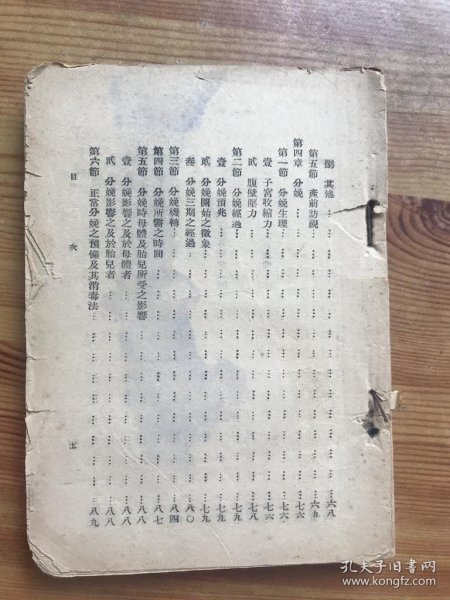 捌 其他……六八
第五節 產前訪視……六九
第四章 分娩……七六
第一節 分娩生理……七六
壹 子宮收縮力……七六
貳 腹壁壓力……七八
第二節 分娩經過……七九
壹 分娩預兆……七九
貳 分娩開始之徵象……七九
叁 分娩三期之經過……八〇
第三節 分娩機轉……八四
第四節 分娩所需之時間……八七
第五節 分娩時母體及胎兒所受之影響……八八
壹 分娩影響之及於母體者……八八
貳 分娩影響之及於胎兒者……八八
第六節 正常分娩之預備及其消毒法……八九
目次 五
孔夫子旧书网
www.kongfz.com